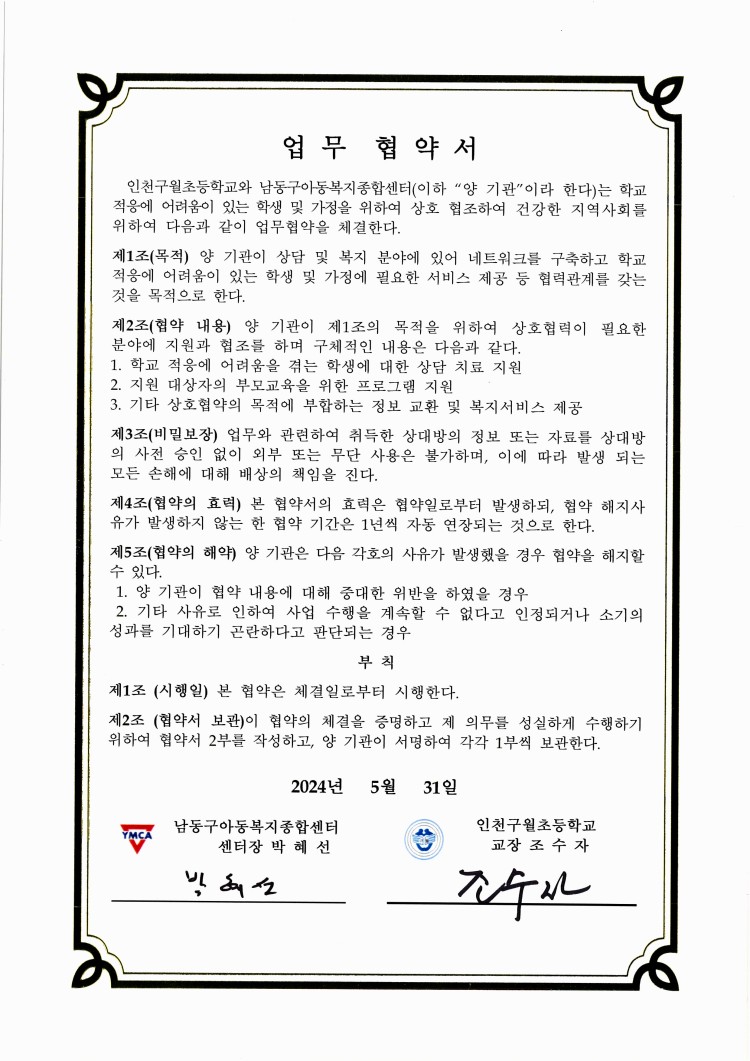 업무 협약서
인천구월초등학교와 남동구아동복지종합센터(이하 “양 기관”이라 한다)는 학교
적응에 어려움이 있는 학생 및 가정을 위하여 상호 협조하여 건강한 지역사회를
위하여 다음과 같이 업무협약을 체결한다.
제1조(목적) 양 기관이 상담 및 복지 분야에 있어 네트워크를 구축하고 학교
적응에 어려움이 있는 학생 및 가정에 필요한 서비스 제공 등 협력관계를 갖는
것을 목적으로 한다.
제2조(협약 내용) 양 기관이 제1조의 목적을 위하여 상호협력이 필요한
분야에 지원과 협조를 하며 구체적인 내용은 다음과 같다.
1. 학교 적응에 어려움을 겪는 학생에 대한 상담 치료 지원
2. 지원 대상자의 부모교육을 위한 프로그램 지원
3. 기타 상호협약의 목적에 부합하는 정보 교환 및 복지서비스 제공
제3조(비밀보장) 업무와 관련하여 취득한 상대방의 정보 또는 자료를 상대방
의 사전 승인 없이 외부 또는 무단 사용은 불가하며, 이에 따라 발생 되는
모든 손해에 대해 배상의 책임을 진다.
제4조(협약의 효력) 본 협약서의 효력은 협약일로부터 발생하되, 협약 해지사
유가 발생하지 않는 한 협약 기간은 1년씩 자동 연장되는 것으로 한다.
제5조(협약의 해약) 양 기관은 다음 각호의 사유가 발생했을 경우 협약을 해지할
수 있다.
1. 양 기관이 협약 내용에 대해 중대한 위반을 하였을 경우
2. 기타 사유로 인하여 사업 수행을 계속할 수 없다고 인정되거나 소기의
성과를 기대하기 곤란하다고 판단되는 경우
부 칙
제1조 (시행일) 본 협약은 체결일로부터 시행한다.
제2조 (협약서 보관)이 협약의 체결을 증명하고 제 의무를 성실하게 수행하기
위하여 협약서 2부를 작성하고, 양 기관이 서명하여 각각 1부씩 보관한다.
2024년 5월 31일
YMCA
남동구아동복지종합센터
센터장 박 혜 선
박 혜 선
인천구월초등학교
교장 조 수 자
조수자